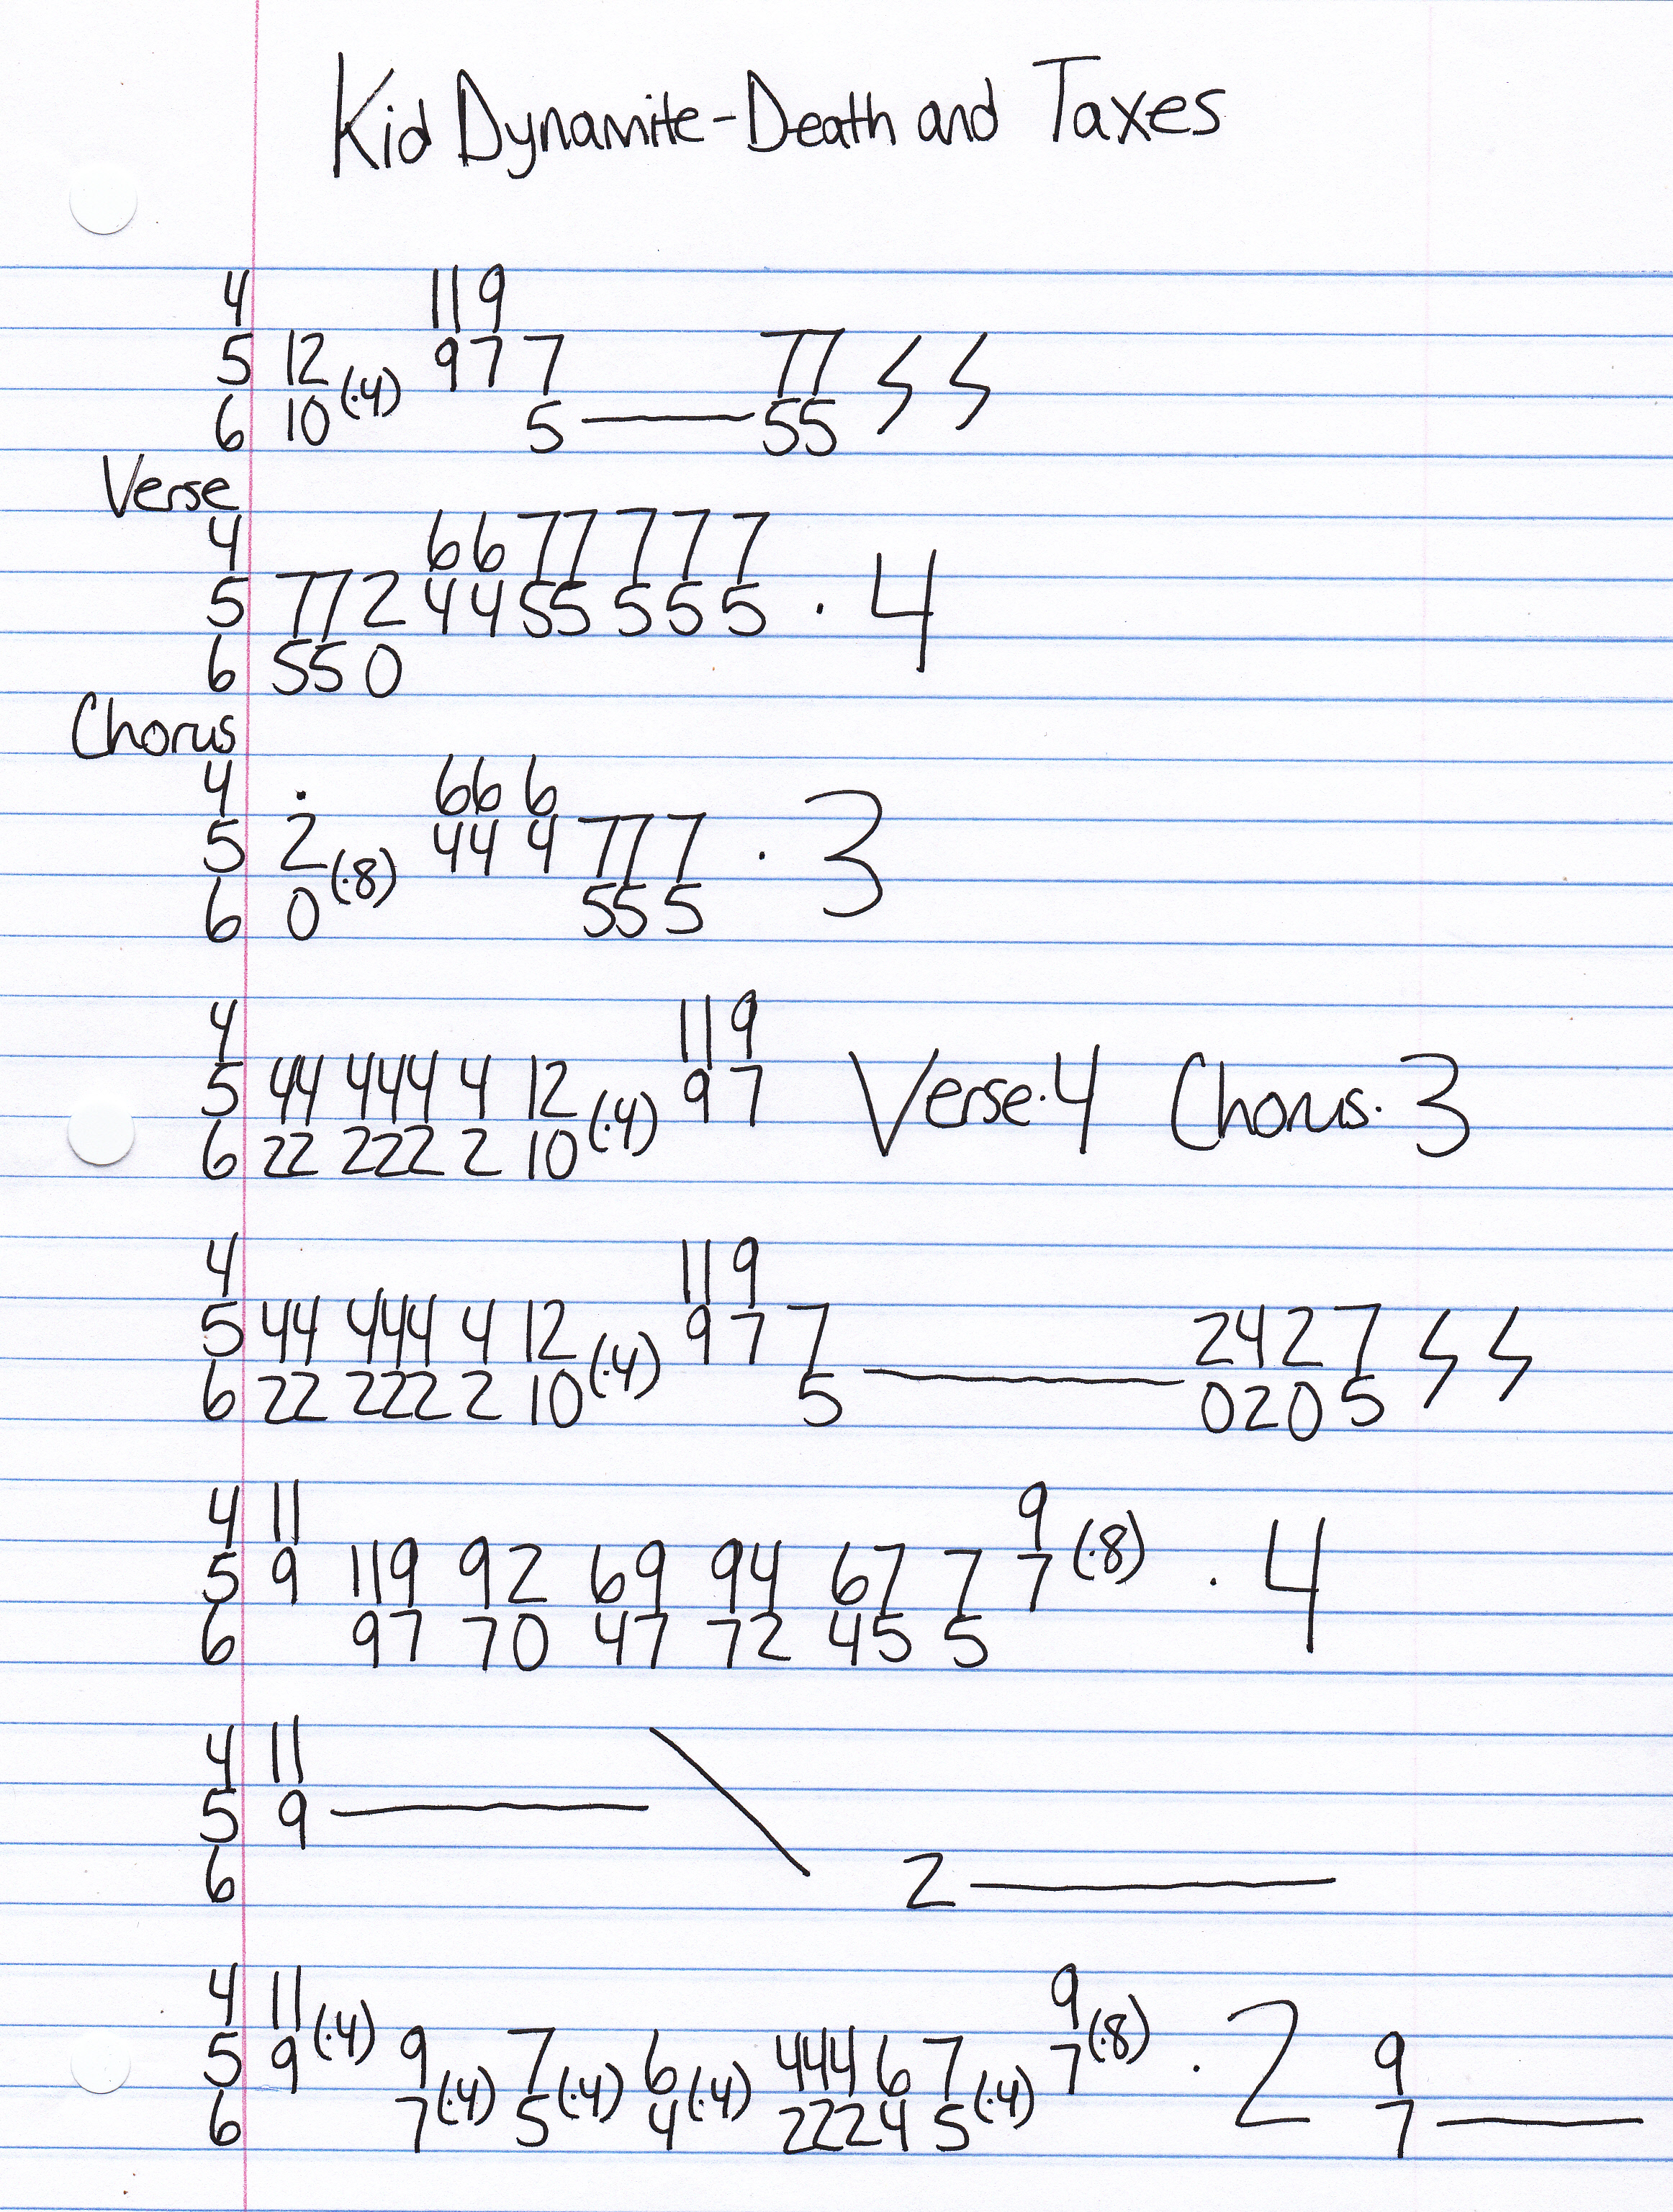 Kid Dynamite-Death and Taxes
4 11 9
5 12 9 7 7 77
(·4)
6 10 5 55
Verse
4 66 77 7 7 7
5 77 2 44 55 5 5 5 · 4
6 55 0
Chorus
4 · 66 6
5 2 44 4 77 7 · 3
(·8)
6 0 55 5
4 11 9
5 44 444 4 12 (·4) 9 7 Verse·4 Chorus·3
6 22 222 2 10
4 11 9
5 44 444 4 12 9 7 7 2427
(·4)
6 22 222 2 10 5 0205
4 11 9 (·8)
5 9 119 92 69 94 67 7 7 · 4
6 97 70 47 72 45 5
4 11
5 9
6 2
4 11 (·4) 9 (·8)
5 9 9 7 6 444 6 7 7 · 2 9
(·4) (·4) (·4) (·4)
6 7 5 4 222 4 5 7